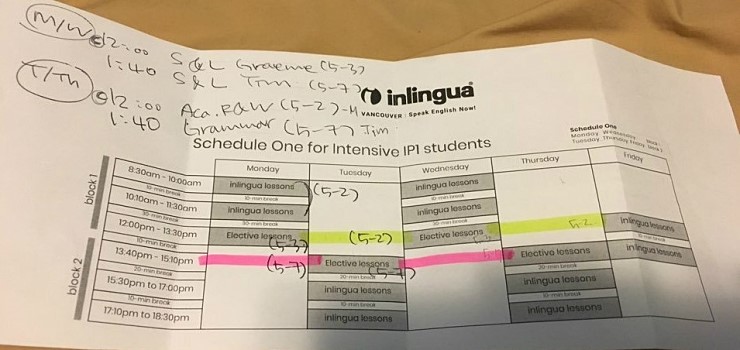 M/W @12:00 S&L Graeme (5-3)
1:40 S&L Tim (5-7)
T/Th @12:00 Aca. R&W (5-2)-M
1:40 Grammar (5-7) Tim
inlingua
VANCOUVER : Speak English Now!
Schedule One for Intensive IPI students
Schedule One
Monday Wednesday
Tuesday Thursday Friday
Monday Tuesday Wednesday Thursday Friday
block 1
8:30am - 10:00am inlingua lessons inlingua lessons
10-min break 10-min break 10-min break
(5-2)
10:10am - 11:30am inlingua lessons inlingua lessons
30-min break 30-min break 30-min break
12:00pm - 13:30pm Elective lessons (5-3) (5-2) Elective lessons 5-2 inlingua lessons
10-min break 10-min break
block 2
13:40pm - 15:10pm (5-7) Elective lessons (5-7) Elective lessons inlingua lessons
20-min break 20-min break 20-min break
15:30pm to 17:00pm inlingua lessons inlingua lessons
10-min break 10-min break 10-min break
17:10pm to 18:30pm inlingua lessons inlingua lessons